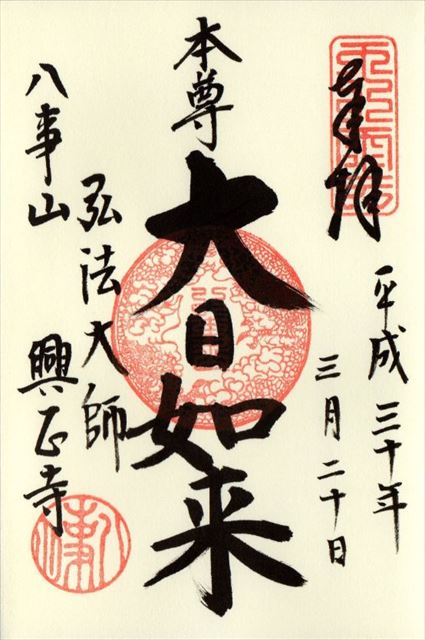 奉拝
平成三十年
三月二十日
本尊
大日如来
弘法大師
八事山
興正寺